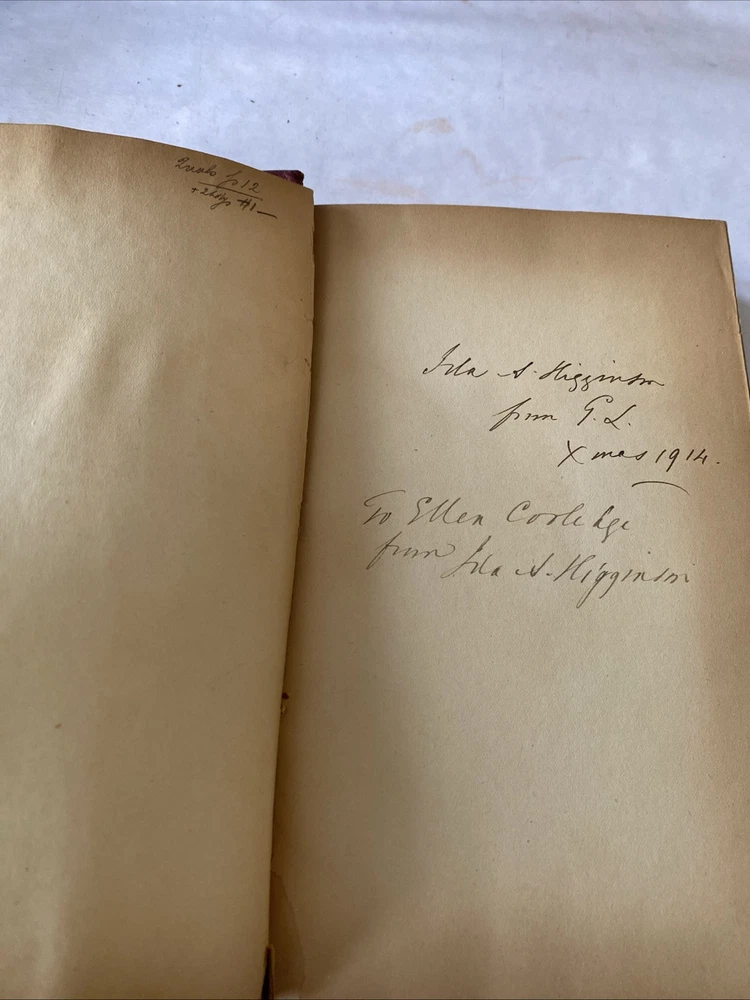 2 vols $12
Ida A. Higginson
from G. L.
Xmas 1914.
To Ellen Coolidge
from Ida A. Higginson